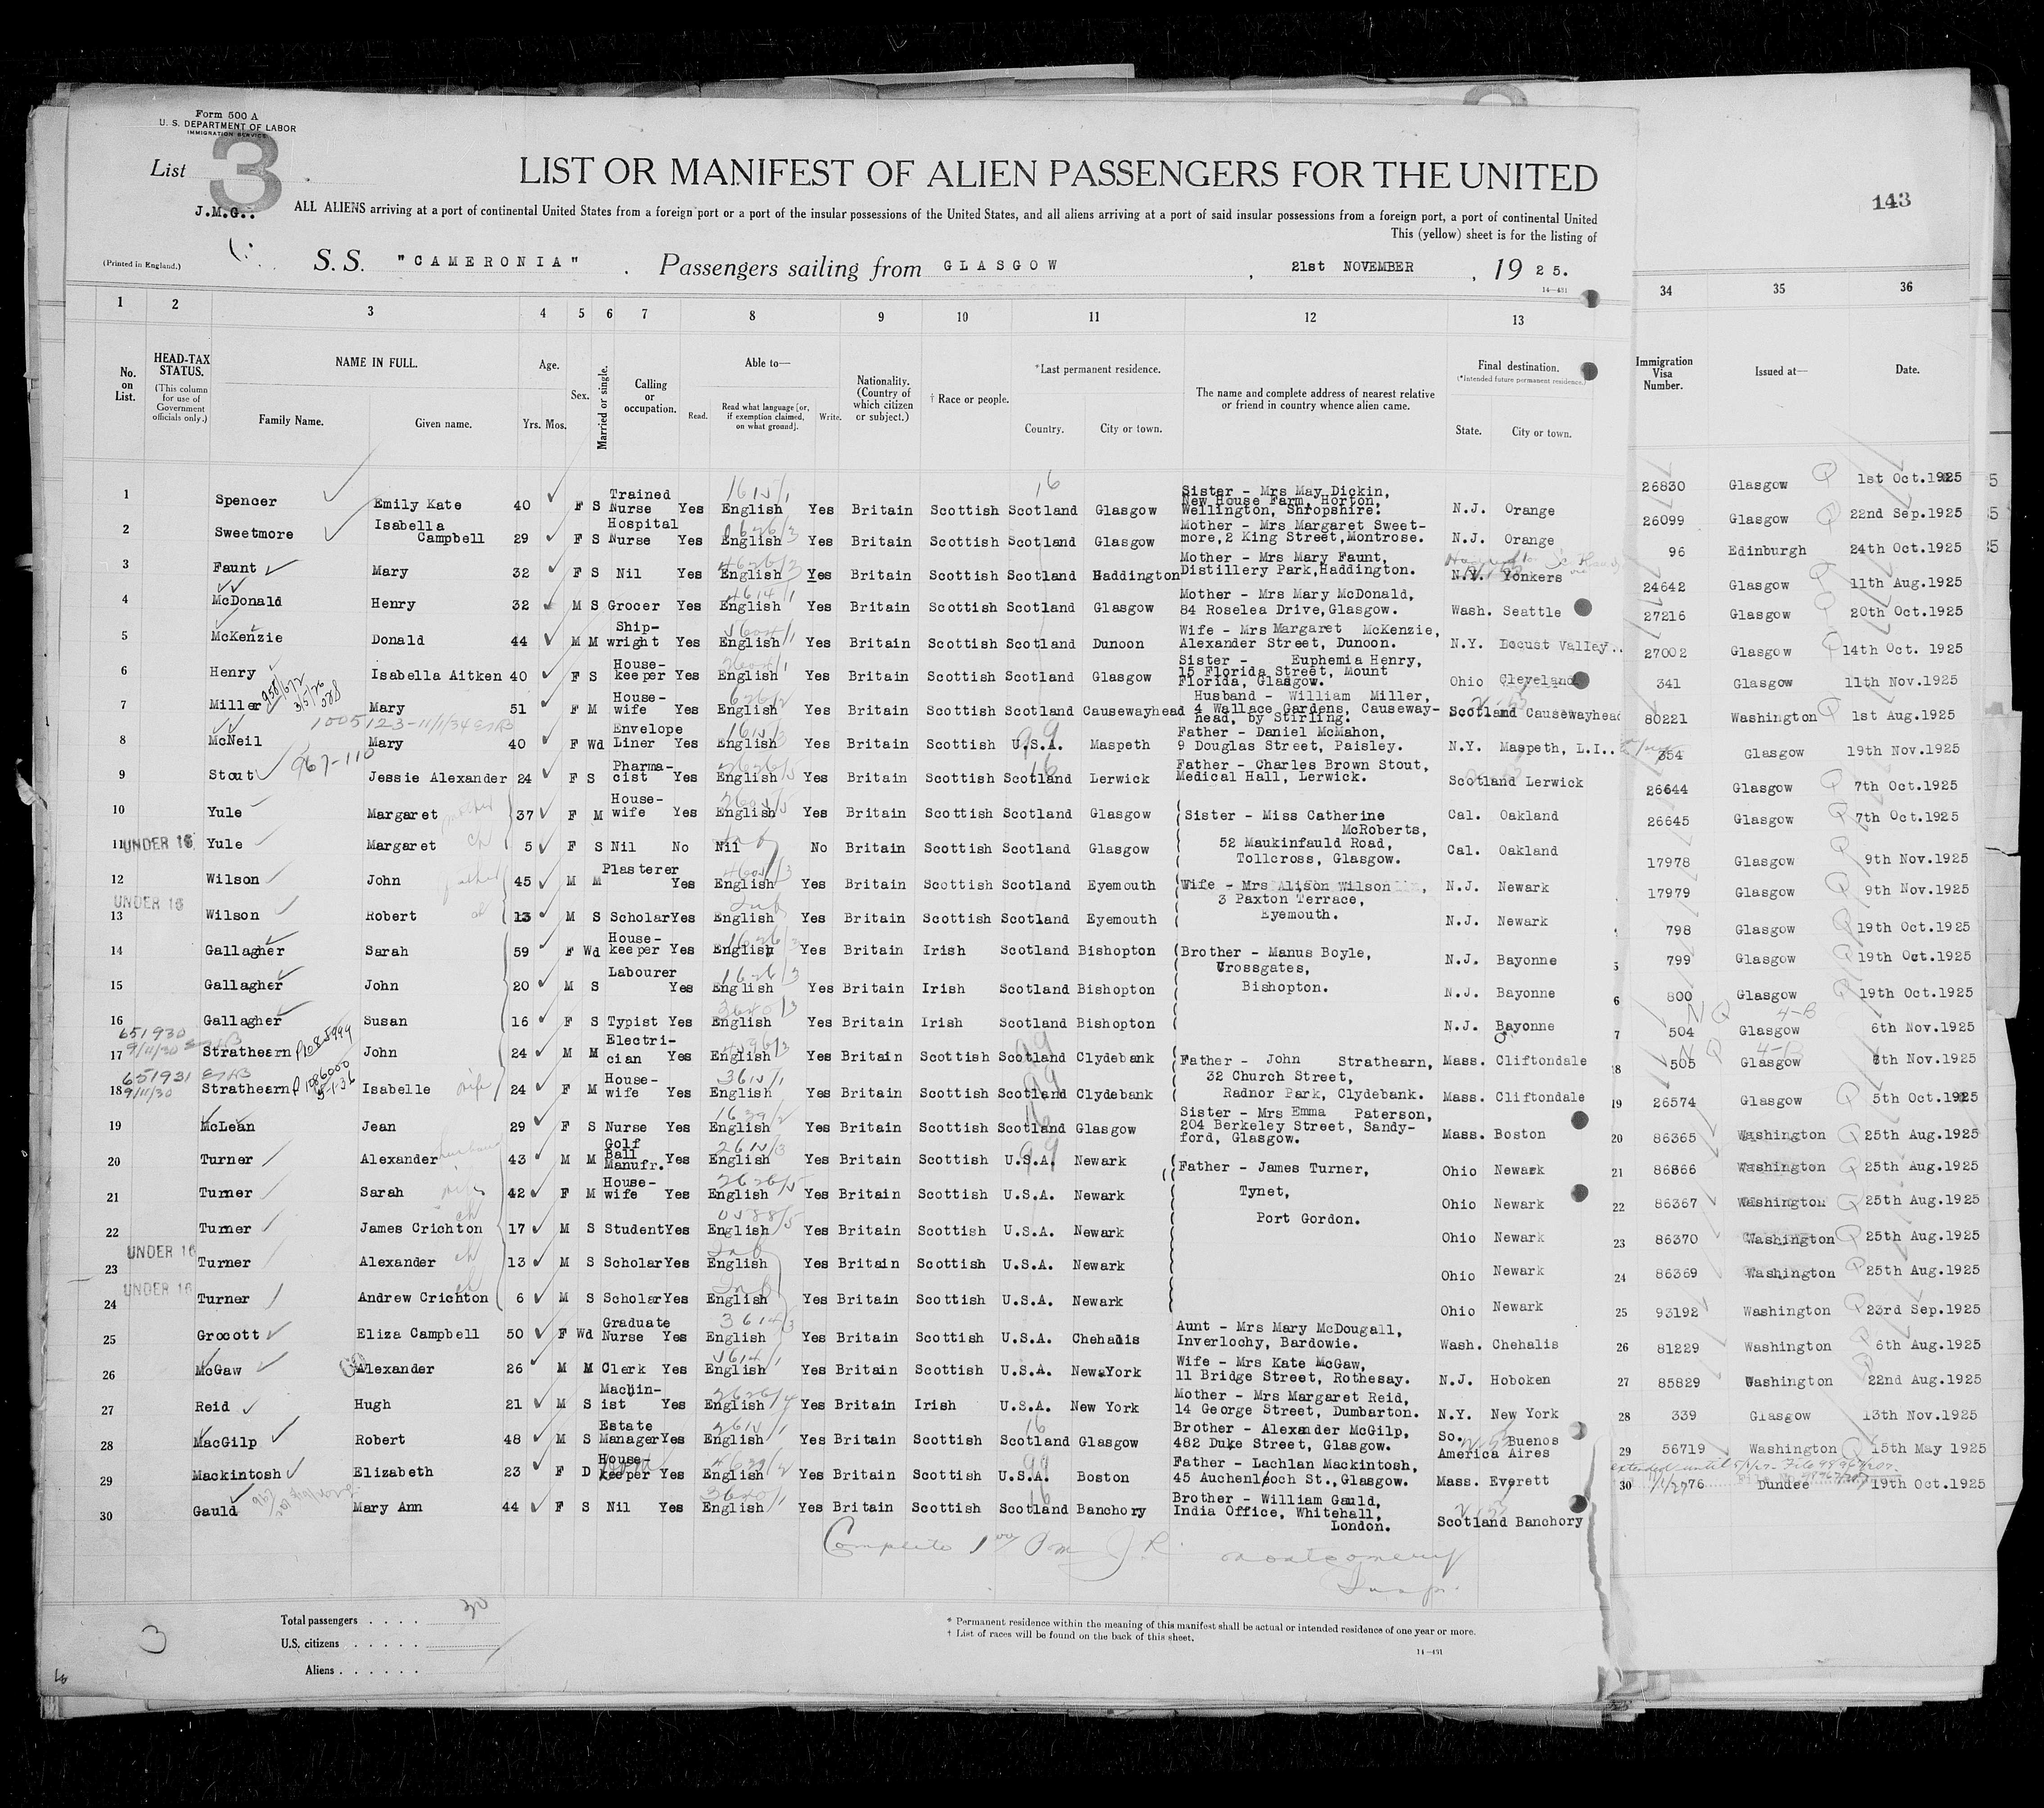 Form 500 A
U. S. DEPARTMENT OF LABOR
IMMIGRATION SERVICE
List 3
J.M.G.:
LIST OR MANIFEST OF ALIEN PASSENGERS FOR THE UNITED
ALL ALIENS arriving at a port of continental United States from a foreign port or a port of the insular possessions of the United States, and all aliens arriving at a port of said insular possessions from a foreign port, a port of continental United
This (yellow) sheet is for the listing of
(Printed in England.)
S. S. "CAMERONIA" . Passengers sailing from GLASGOW , 21st NOVEMBER , 19 25.
14—431
143
1 2 3 4 5 6 7 8 9 10 11 12 13 34 35 36
No. on List.
HEAD-TAX STATUS.
(This column for use of Government officials only.)
NAME IN FULL.
Family Name. Given name.
Age.
Yrs. Mos.
Sex.
Married or single.
Calling or occupation.
Able to—
Read. Read what language [or, if exemption claimed, on what ground]. Write.
Nationality. (Country of which citizen or subject.)
† Race or people.
*Last permanent residence.
Country. City or town.
The name and complete address of nearest relative or friend in country whence alien came.
Final destination.
(*Intended future permanent residence.)
State. City or town.
Immigration Visa Number.
Issued at—
Date.
1 Spencer Emily Kate 40 F S Trained Nurse Yes English Yes Britain Scottish Scotland Glasgow Sister - Mrs May Dickin, New House Farm, Horton, Wellington, Shropshire. N.J. Orange
2 Sweetmore Isabella Campbell 29 F S Hospital Nurse Yes English Yes Britain Scottish Scotland Glasgow Mother - Mrs Margaret Sweetmore, 2 King Street, Montrose. N.J. Orange
3 Faunt Mary 32 F S Nil Yes English Yes Britain Scottish Scotland Haddington Mother - Mrs Mary Faunt, Distillery Park, Haddington. N.Y. Yonkers
4 McDonald Henry 32 M S Grocer Yes English Yes Britain Scottish Scotland Glasgow Mother - Mrs Mary McDonald, 84 Roselea Drive, Glasgow. Wash. Seattle
5 McKenzie Donald 44 M M Ship-wright Yes English Yes Britain Scottish Scotland Dunoon Wife - Mrs Margaret McKenzie, Alexander Street, Dunoon. N.Y. Locust Valley..
6 Henry Isabella Aitken 40 F S House-keeper Yes English Yes Britain Scottish Scotland Glasgow Sister - Euphemia Henry, 15 Florida Street, Mount Florida, Glasgow. Ohio Cleveland
7 Miller Mary 51 F M House-wife Yes English Yes Britain Scottish Scotland Causewayhead Husband - William Miller, 4 Wallace Gardens, Causeway-head, by Stirling. Scotland Causewayhead
8 McNeil Mary 40 F Wd Envelope Liner Yes English Yes Britain Scottish U.S.A. Maspeth Father - Daniel McMahon, 9 Douglas Street, Paisley. N.Y. Maspeth, L.I..
9 Stout Jessie Alexander 24 F S Pharma-cist Yes English Yes Britain Scottish Scotland Lerwick Father - Charles Brown Stout, Medical Hall, Lerwick. Scotland Lerwick
10 Yule Margaret 37 F M House-wife Yes English Yes Britain Scottish Scotland Glasgow Sister - Miss Catherine McRoberts, Cal. Oakland
UNDER 16
11 Yule Margaret 5 F S Nil No Nil No Britain Scottish Scotland Glasgow 52 Maukinfauld Road, Tollcross, Glasgow. Cal. Oakland
12 Wilson John 45 M M Plasterer Yes English Yes Britain Scottish Scotland Eyemouth Wife - Mrs Alison Wilson, N.J. Newark
UNDER 16
13 Wilson Robert 13 M S Scholar Yes English Yes Britain Scottish Scotland Eyemouth 3 Paxton Terrace, Eyemouth. N.J. Newark
14 Gallagher Sarah 59 F Wd House-keeper Yes English Yes Britain Irish Scotland Bishopton Brother - Manus Boyle, N.J. Bayonne
15 Gallagher John 20 M S Labourer Yes English Yes Britain Irish Scotland Bishopton Crossgates, Bishopton. N.J. Bayonne
16 Gallagher Susan 16 F S Typist Yes English Yes Britain Irish Scotland Bishopton N.J. Bayonne
651930
9/11/30
17 Strathearn John 24 M M Electri-cian Yes English Yes Britain Scottish Scotland Clydebank Father - John Strathearn, Mass. Cliftondale
651931
9/11/30
18 Strathearn Isabelle wife 24 F M House-wife Yes English Yes Britain Scottish Scotland Clydebank 32 Church Street, Radnor Park, Clydebank. Mass. Cliftondale
19 McLean Jean 29 F S Nurse Yes English Yes Britain Scottish Scotland Glasgow Sister - Mrs Emma Paterson, 204 Berkeley Street, Sandy-ford, Glasgow. Mass. Boston
20 Turner Alexander husband 43 M M Golf Ball Manufr. Yes English Yes Britain Scottish U.S.A. Newark Father - James Turner, Ohio Newark
21 Turner Sarah wife 42 F M House-wife Yes English Yes Britain Scottish U.S.A. Newark Tynet, Ohio Newark
22 Turner James Crichton ch 17 M S Student Yes English Yes Britain Scottish U.S.A. Newark Port Gordon. Ohio Newark
UNDER 16
23 Turner Alexander ch 13 M S Scholar Yes English Yes Britain Scottish U.S.A. Newark Ohio Newark
UNDER 16
24 Turner Andrew Crichton ch 6 M S Scholar Yes English Yes Britain Scottish U.S.A. Newark Ohio Newark
25 Grocott Eliza Campbell 50 F Wd Graduate Nurse Yes English Yes Britain Scottish U.S.A. Chehalis Aunt - Mrs Mary McDougall, Inverlochy, Bardowie. Wash. Chehalis
26 McGaw Alexander 26 M M Clerk Yes English Yes Britain Scottish U.S.A. New York Wife - Mrs Kate McGaw, 11 Bridge Street, Rothesay. N.J. Hoboken
27 Reid Hugh 21 M S Machin-ist Yes English Yes Britain Irish U.S.A. New York Mother - Mrs Margaret Reid, 14 George Street, Dumbarton. N.Y. New York
28 MacGilp Robert 48 M S Estate Manager Yes English Yes Britain Scottish Scotland Glasgow Brother - Alexander McGilp, 482 Duke Street, Glasgow. So. America Buenos Aires
29 Mackintosh Elizabeth 23 F D House-keeper Yes English Yes Britain Scottish U.S.A. Boston Father - Lachlan Mackintosh, 45 Auchenloch St., Glasgow. Mass. Everett
30 Gauld Mary Ann 44 F S Nil Yes English Yes Britain Scottish Scotland Banchory Brother - William Gauld, India Office, Whitehall, London. Scotland Banchory
26830 Glasgow 1st Oct. 1925
26099 Glasgow 22nd Sep. 1925
96 Edinburgh 24th Oct. 1925
24642 Glasgow 11th Aug. 1925
27216 Glasgow 20th Oct. 1925
27002 Glasgow 14th Oct. 1925
341 Glasgow 11th Nov. 1925
80221 Washington 1st Aug. 1925
354 Glasgow 19th Nov. 1925
26644 Glasgow 7th Oct. 1925
26645 Glasgow 7th Oct. 1925
17978 Glasgow 9th Nov. 1925
17979 Glasgow 9th Nov. 1925
798 Glasgow 19th Oct. 1925
5 799 Glasgow 19th Oct. 1925
6 800 Glasgow 19th Oct. 1925
NQ 4-B
7 504 Glasgow 6th Nov. 1925
NQ 4-B
18 505 Glasgow 6th Nov. 1925
19 26574 Glasgow 5th Oct. 1925
20 86365 Washington 25th Aug. 1925
21 86366 Washington 25th Aug. 1925
22 86367 Washington 25th Aug. 1925
23 86370 Washington 25th Aug. 1925
24 86369 Washington 25th Aug. 1925
25 93192 Washington 23rd Sep. 1925
26 81229 Washington 6th Aug. 1925
27 85829 Washington 22nd Aug. 1925
28 339 Glasgow 13th Nov. 1925
29 56719 Washington 15th May 1925
extended until
30 76 Dundee 19th Oct. 1925
Complete 1 00 Pm J R Montgomery
Insp.
Total passengers . . . . 30
U.S. citizens . . . . .
Aliens . . . . . .
3
* Permanent residence within the meaning of this manifest shall be actual or intended residence of one year or more.
† List of races will be found on the back of this sheet.
14—431